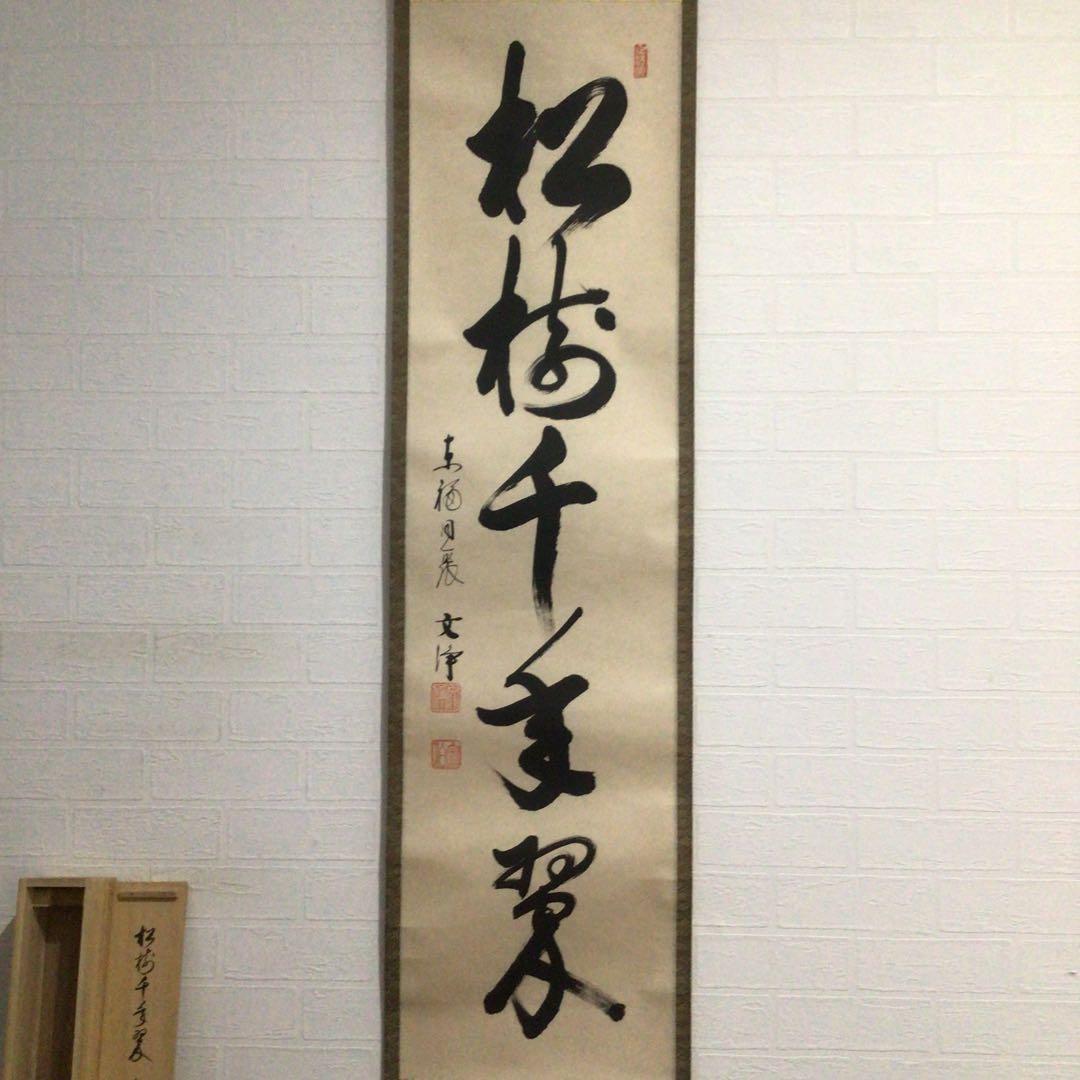 松樹千年翠
東福同聚 文浄
松樹千年翠